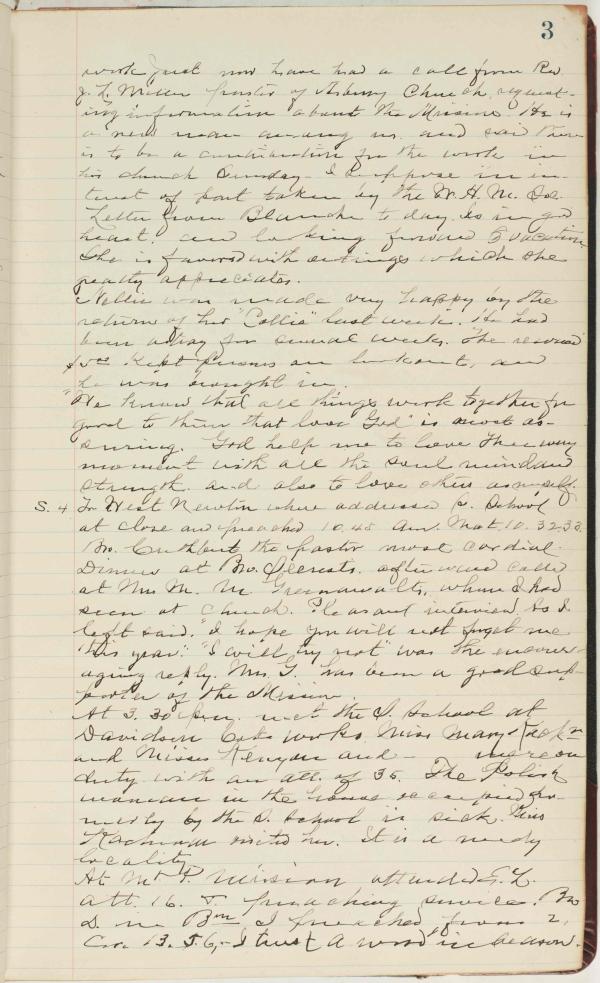 3
work just now have had a call from Rev.
J. L. Miller pastor of Asbury Church, request-
ing information about the Mission. He is
a new man among us. and said there
is to be a contribution for the work in
his church Sunday - I suppose in in-
terest of part taken by the W. H. M. Soc.
Letter from Blanche to day. Is in good
heart. and looking forward to vacation
She is favored with outings which she
greatly appreciates.
Nellie was made very happy by the
return of her "Collie" last week. He had
been away for several weeks. The reward
$5.00 kept persons on lookout, and
he was brought in.
"We know that all things work together for
good to them that love God" is most as-
suring. God help me to love Thee every
moment with all the soul mind and
strength. and also to love others as myself.
S. 4 In West Newton where addressed S. School
at close and preached 10.45 Am. Mat. 10. 32.33.
Bro. Cuthbert the pastor most cordial.
Dinner at Bro. afterward called
at Mrs M. M. Greenawalts, whom I had
seen at church. Pleasant interview. As I
left said. "I hope you will not forget me
this year." "I will try not" was the encour-
aging reply. Mrs. G. has been a good sup-
porter of the Mission.
At 3.30 p.m. met the S. School at
Davidson Coke works. Miss Mary
and Misses Kenyon and - were on
duty with an att. of 35. The Polish
woman in the house occupied for-
merly by the S. School is sick. Miss
visited her. It is a needy
locality.
At Mt. P. Mission attended E. L.
att. 16. & preaching service. Bro
D. in Bm I preached from 2,
Cor. 13. 5.6,- I trust "A word in season".